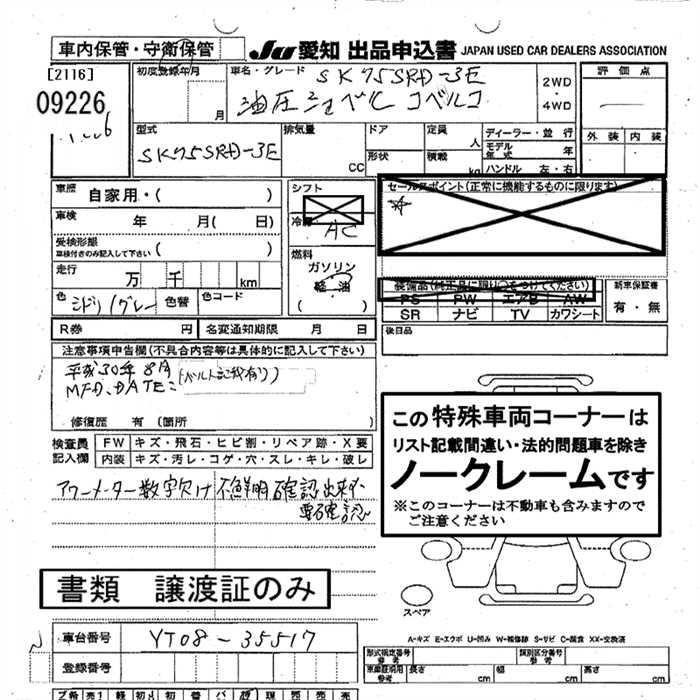 車内保管・守衛保管
JU 愛知 出品申込書 JAPAN USED CAR DEALERS ASSOCIATION
[2116]
09226
初度登録年月
月
車名・グレード SK75SRD-3E
油圧ショベル コベルコ
2WD
・
4WD
評価点
外装 内装
型式
SK75SRD-3E
排気量
CC
ドア
形状
定員
人
積載
kg
ディーラー・並行
モデル年式 年
ハンドル 左・右
車歴 自家用・( )
車検 年 月( 日)
受検形態
車検付きのみ記入して下さい ( )
走行 万 千 km
シフト
冷房
AC
燃料
ガソリン
軽油
( )
セールスポイント(正常に機能するものに限ります)
☆
装備品(純正品に限り○をつけてください)
PS PW エアB AW
SR ナビ TV カワシート
新車保証書
有・無
後日品
色 ミドリ/グレー
色替
色コード
R券 円
名変通知期限 月 日
注意事項申告欄(不具合内容等は具体的に記入して下さい)
平成30年8月
MFD.DATE:
修復歴 有 (箇所
検査員記入欄
FW キズ・飛石・ヒビ割・リペア跡・X要
内装 キズ・汚レ・コゲ・穴・スレ・キレ・破レ
アワーメーター数字欠け 不鮮明 確認出来ず
要確認
この特殊車両コーナーは
リスト記載間違い・法的問題車を除き
ノークレームです
※このコーナーは不動車も含みますので
ご注意ください
書類 譲渡証のみ
スペア
車台番号 YT08-35517
登録番号
A-キズ E-エクボ U-凹み W-補修跡 S-サビ C-腐食 XX-交換済
型式指定番号
類別区分番号
長さ cm 幅 cm 高さ cm